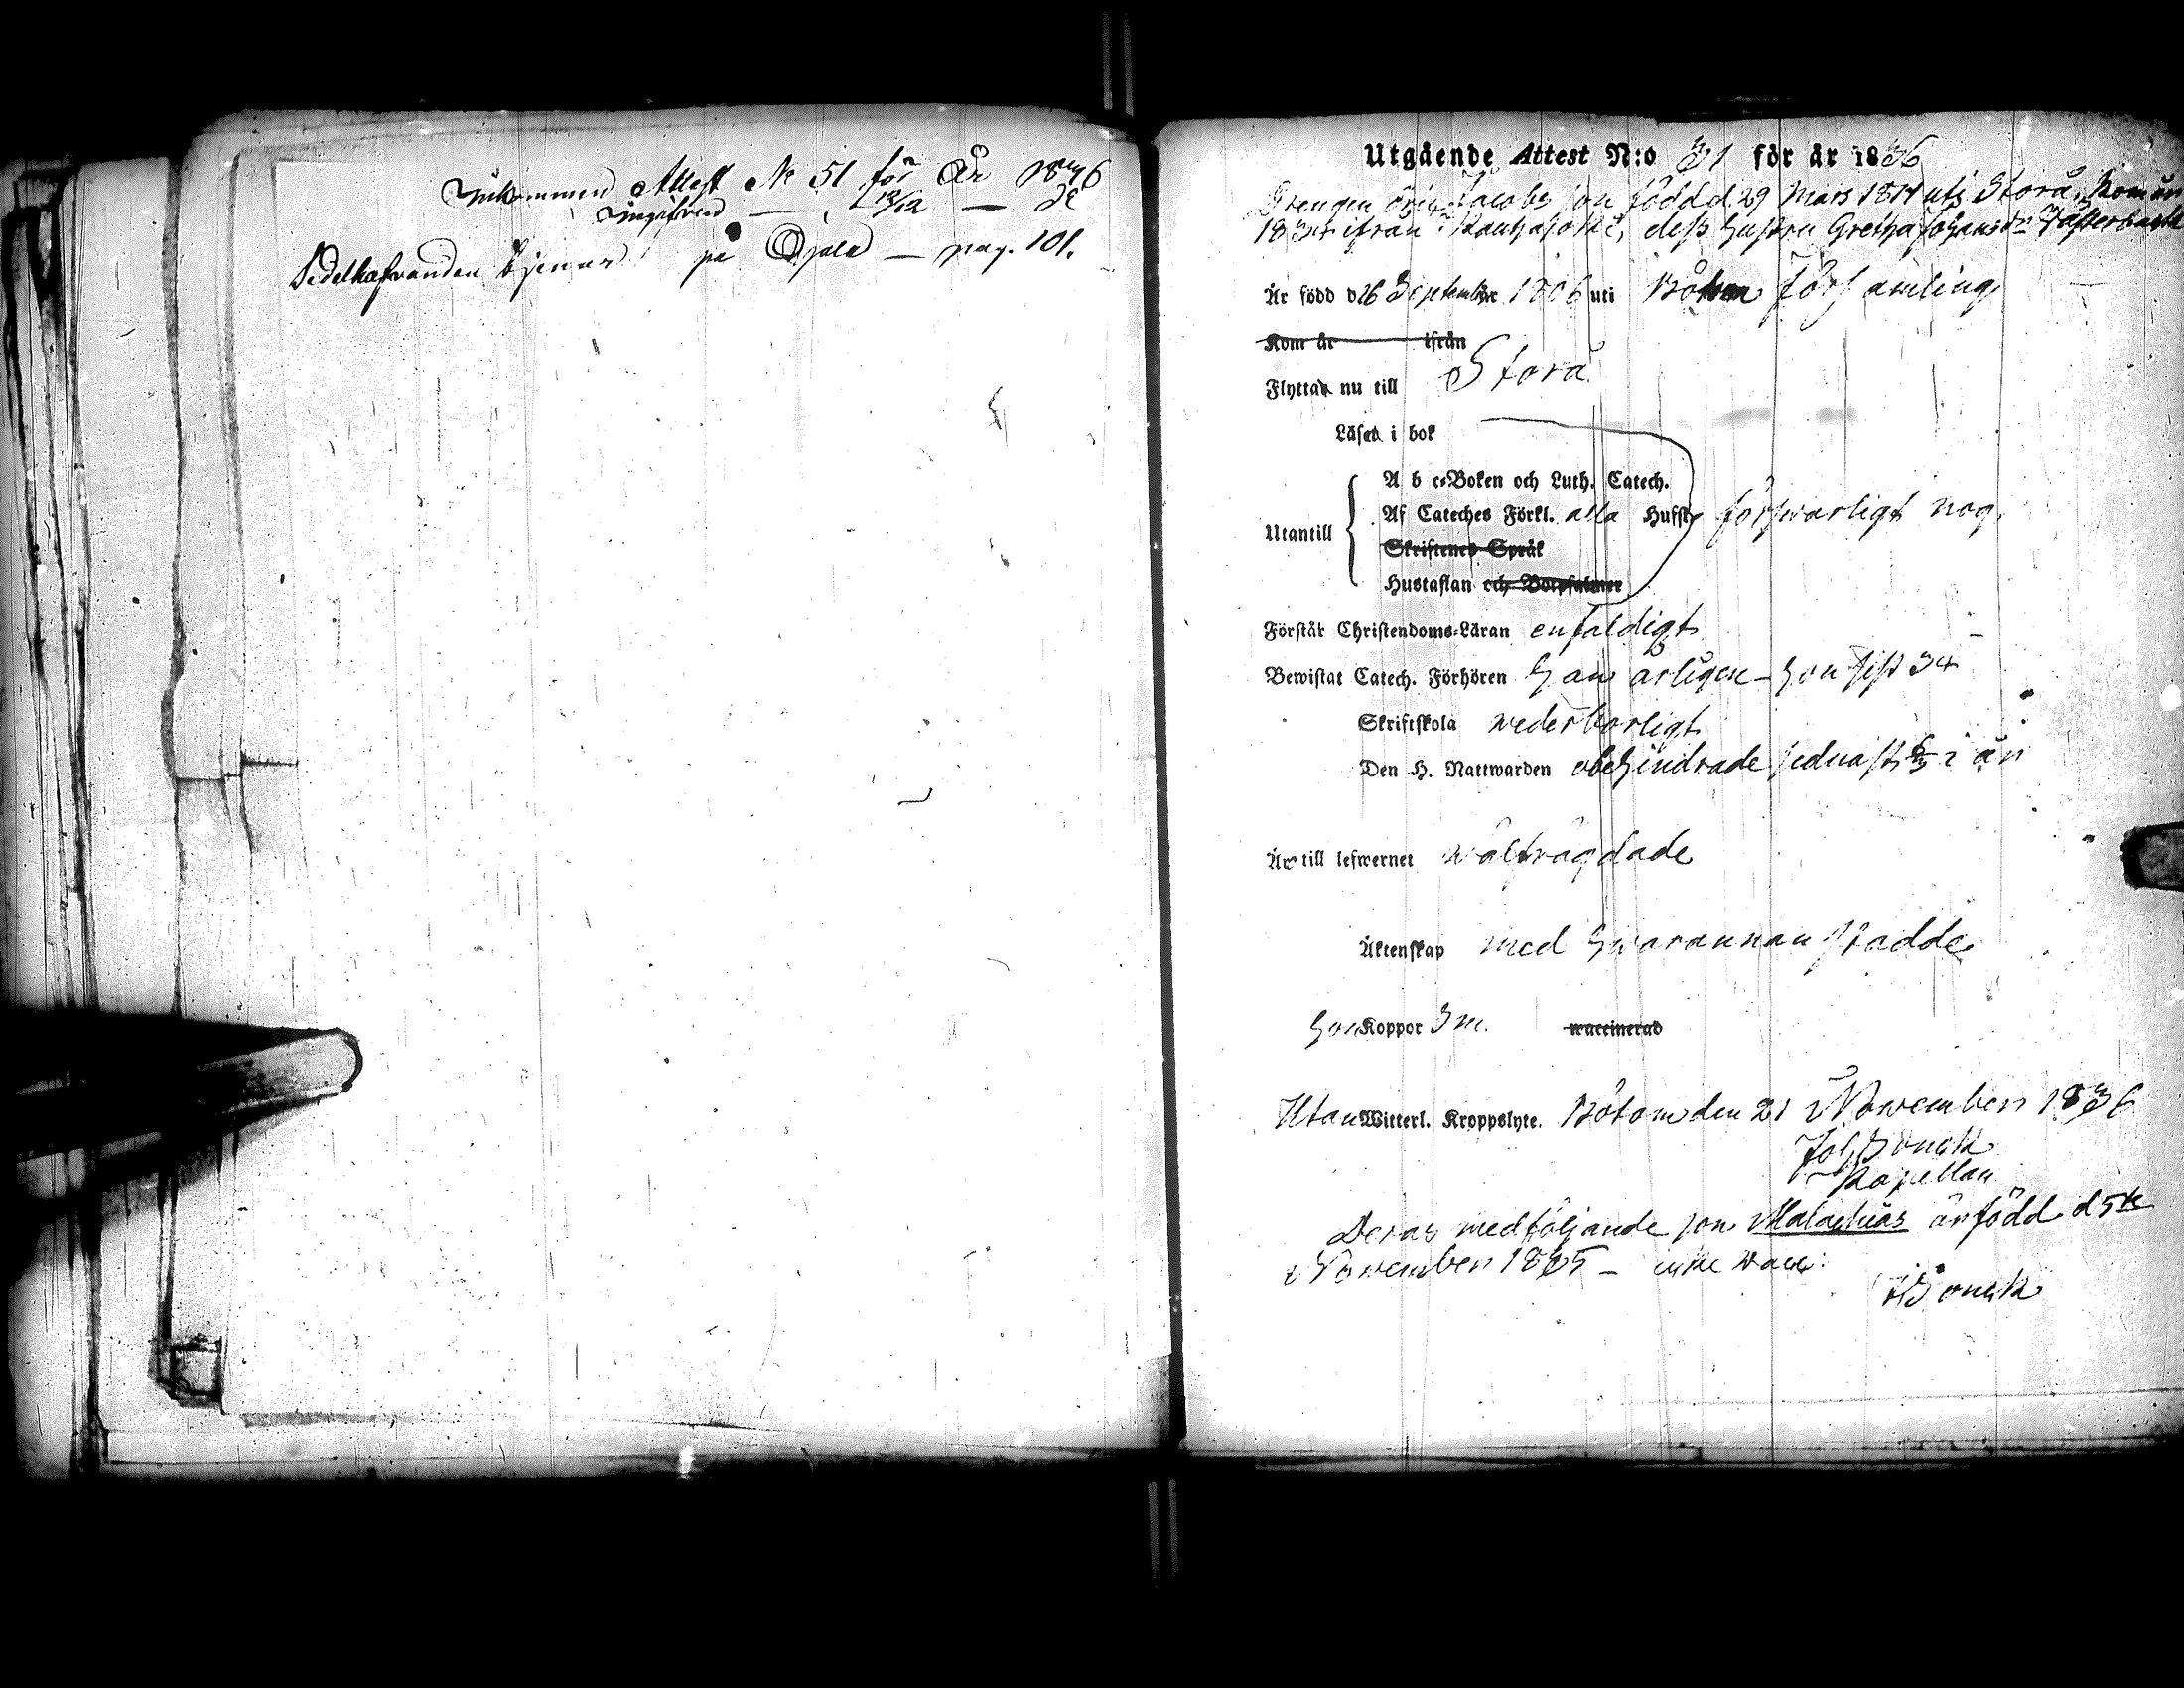 Inkommen Attest No 51 för År 1836
Ingifven — 12/12 — 36
Sedelhafvanden tjenar på Ojala — pag. 101.
Utgående Attest N:o 31 för år 1836
Drengen Jacobsson född d 29 Mars 1811 uti Storå, Kom år
1834 ifrån Kauhajoki, dess hustru Gretha Johansdr Västerback
Är född d 26 September 1806 uti Bötom församling
Kom år ifrån
Flyttar nu till Storå
Läser i bok
A b c-Boken och Luth. Catech.
Utantill Af Cateches Förkl. alla Hufst. försvarligt nog.
Skriftenes Språk
Hustaflan och Botpsalmer
Förstår Christendoms-Läran enfaldigt
Bewistat Catech. Förhören han årligen - hon sist 34
Skriftskola wederborligt
Den H. Nattwarden obehindrade sednast i år
Är till lefwernet wälfrägdade
Äktenskap med hwarannan stadde
hon Koppor waccinerad
Utan Witterl. Kroppslyte. Bötom den 21 November 1836
Joh Bonck
Kapellan
Deras medföljande son Malachias är född d 5te
November 1835 — icke wacc:
JBonck